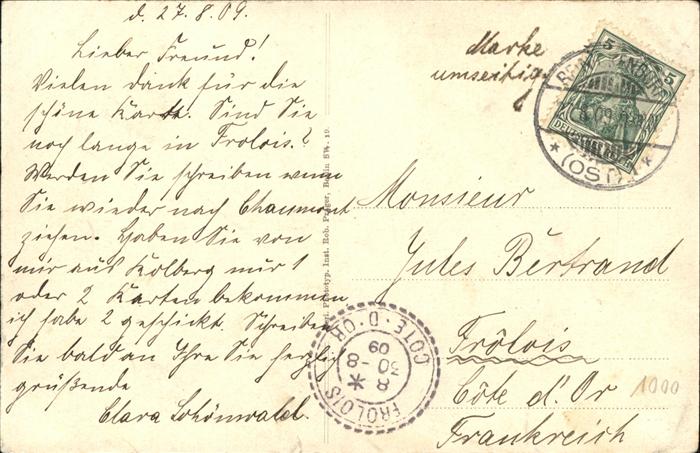 d. 27.8.09.
Lieber Freund!
Vielen dank für die
schöne Karte. Sind Sie
noch lange in Frolois?
Werden Sie schreiben wenn
Sie wieder nach Chaumont
ziehen. Haben Sie von
mir aus Kolberg nur 1
oder 2 Karten bekommen
ich habe 2 geschickt. Schreiben
Sie bald an Ihre Sie herzlich
grüßende
Clara Schönwald.
Phototyp. Inst. Rob. Prager, Berlin SW. 19.
Marke
umseitig.
5 5
(OST)
Monsieur
Jules Bértrand
Frôlois
Côte d'Or
Frankreich
1000
FROLOIS
COTE-D'OR
8
30-8
09